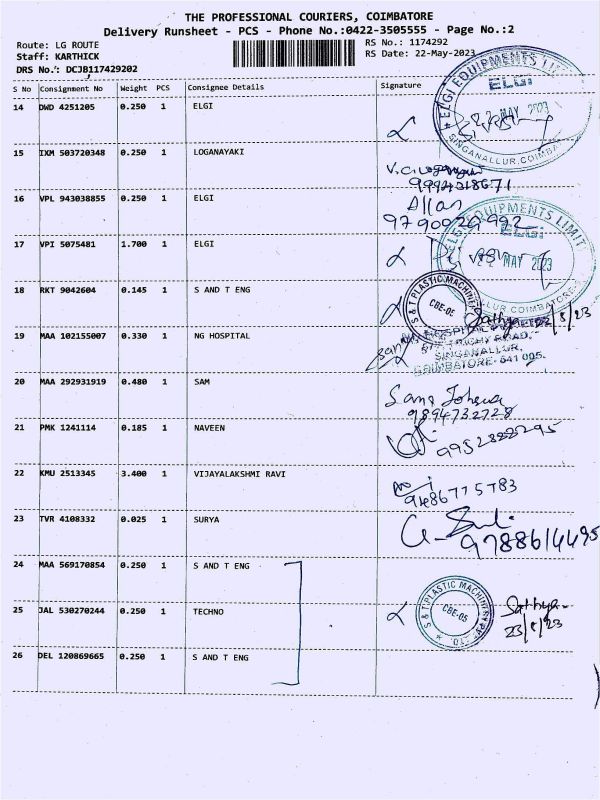 THE PROFESSIONAL COURIERS, COIMBATORE
Delivery Runsheet - PCS - Phone No.:0422-3505555 - Page No.:2
Route: LG ROUTE
RS No.: 1174292
Staff: KARTHICK
RS Date: 22-May-2023
DRS No.: DCJB117429202
S No Consignment No Weight PCS Consignee Details Signature
14 DWD 4251205 0.250 1 ELGI
ELGI EQUIPMENTS LIMITED
ELGI
MAY 2023
SINGANALLUR, COIMBATORE
15 IXM 503720348 0.250 1 LOGANAYAKI
16 VPL 943038855 0.250 1 ELGI
Allan
17 VPI 5075481 1.700 1 ELGI
EQUIPMENTS LIMITED
ELGI
22 MAY 2023
COIMBATORE-5
18 RKT 9042604 0.145 1 S AND T ENG
S & T PLASTIC MACHINERY
CBE-05
Sathya
19 MAA 102155007 0.330 1 NG HOSPITAL
TRICHY ROAD,
SINGANALLUR,
COIMBATORE - 641 005.
20 MAA 292931919 0.480 1 SAM
9894732728
21 PMK 1241114 0.185 1 NAVEEN
22 KMU 2513345 3.400 1 VIJAYALAKSHMI RAVI
9486775783
23 TVR 4108332 0.025 1 SURYA
9788614495
24 MAA 569170854 0.250 1 S AND T ENG
25 JAL 530270244 0.250 1 TECHNO
S & T PLASTIC MACHINERY PVT. LTD.
CBE-05
Sathya
23/5/23
26 DEL 120869665 0.250 1 S AND T ENG